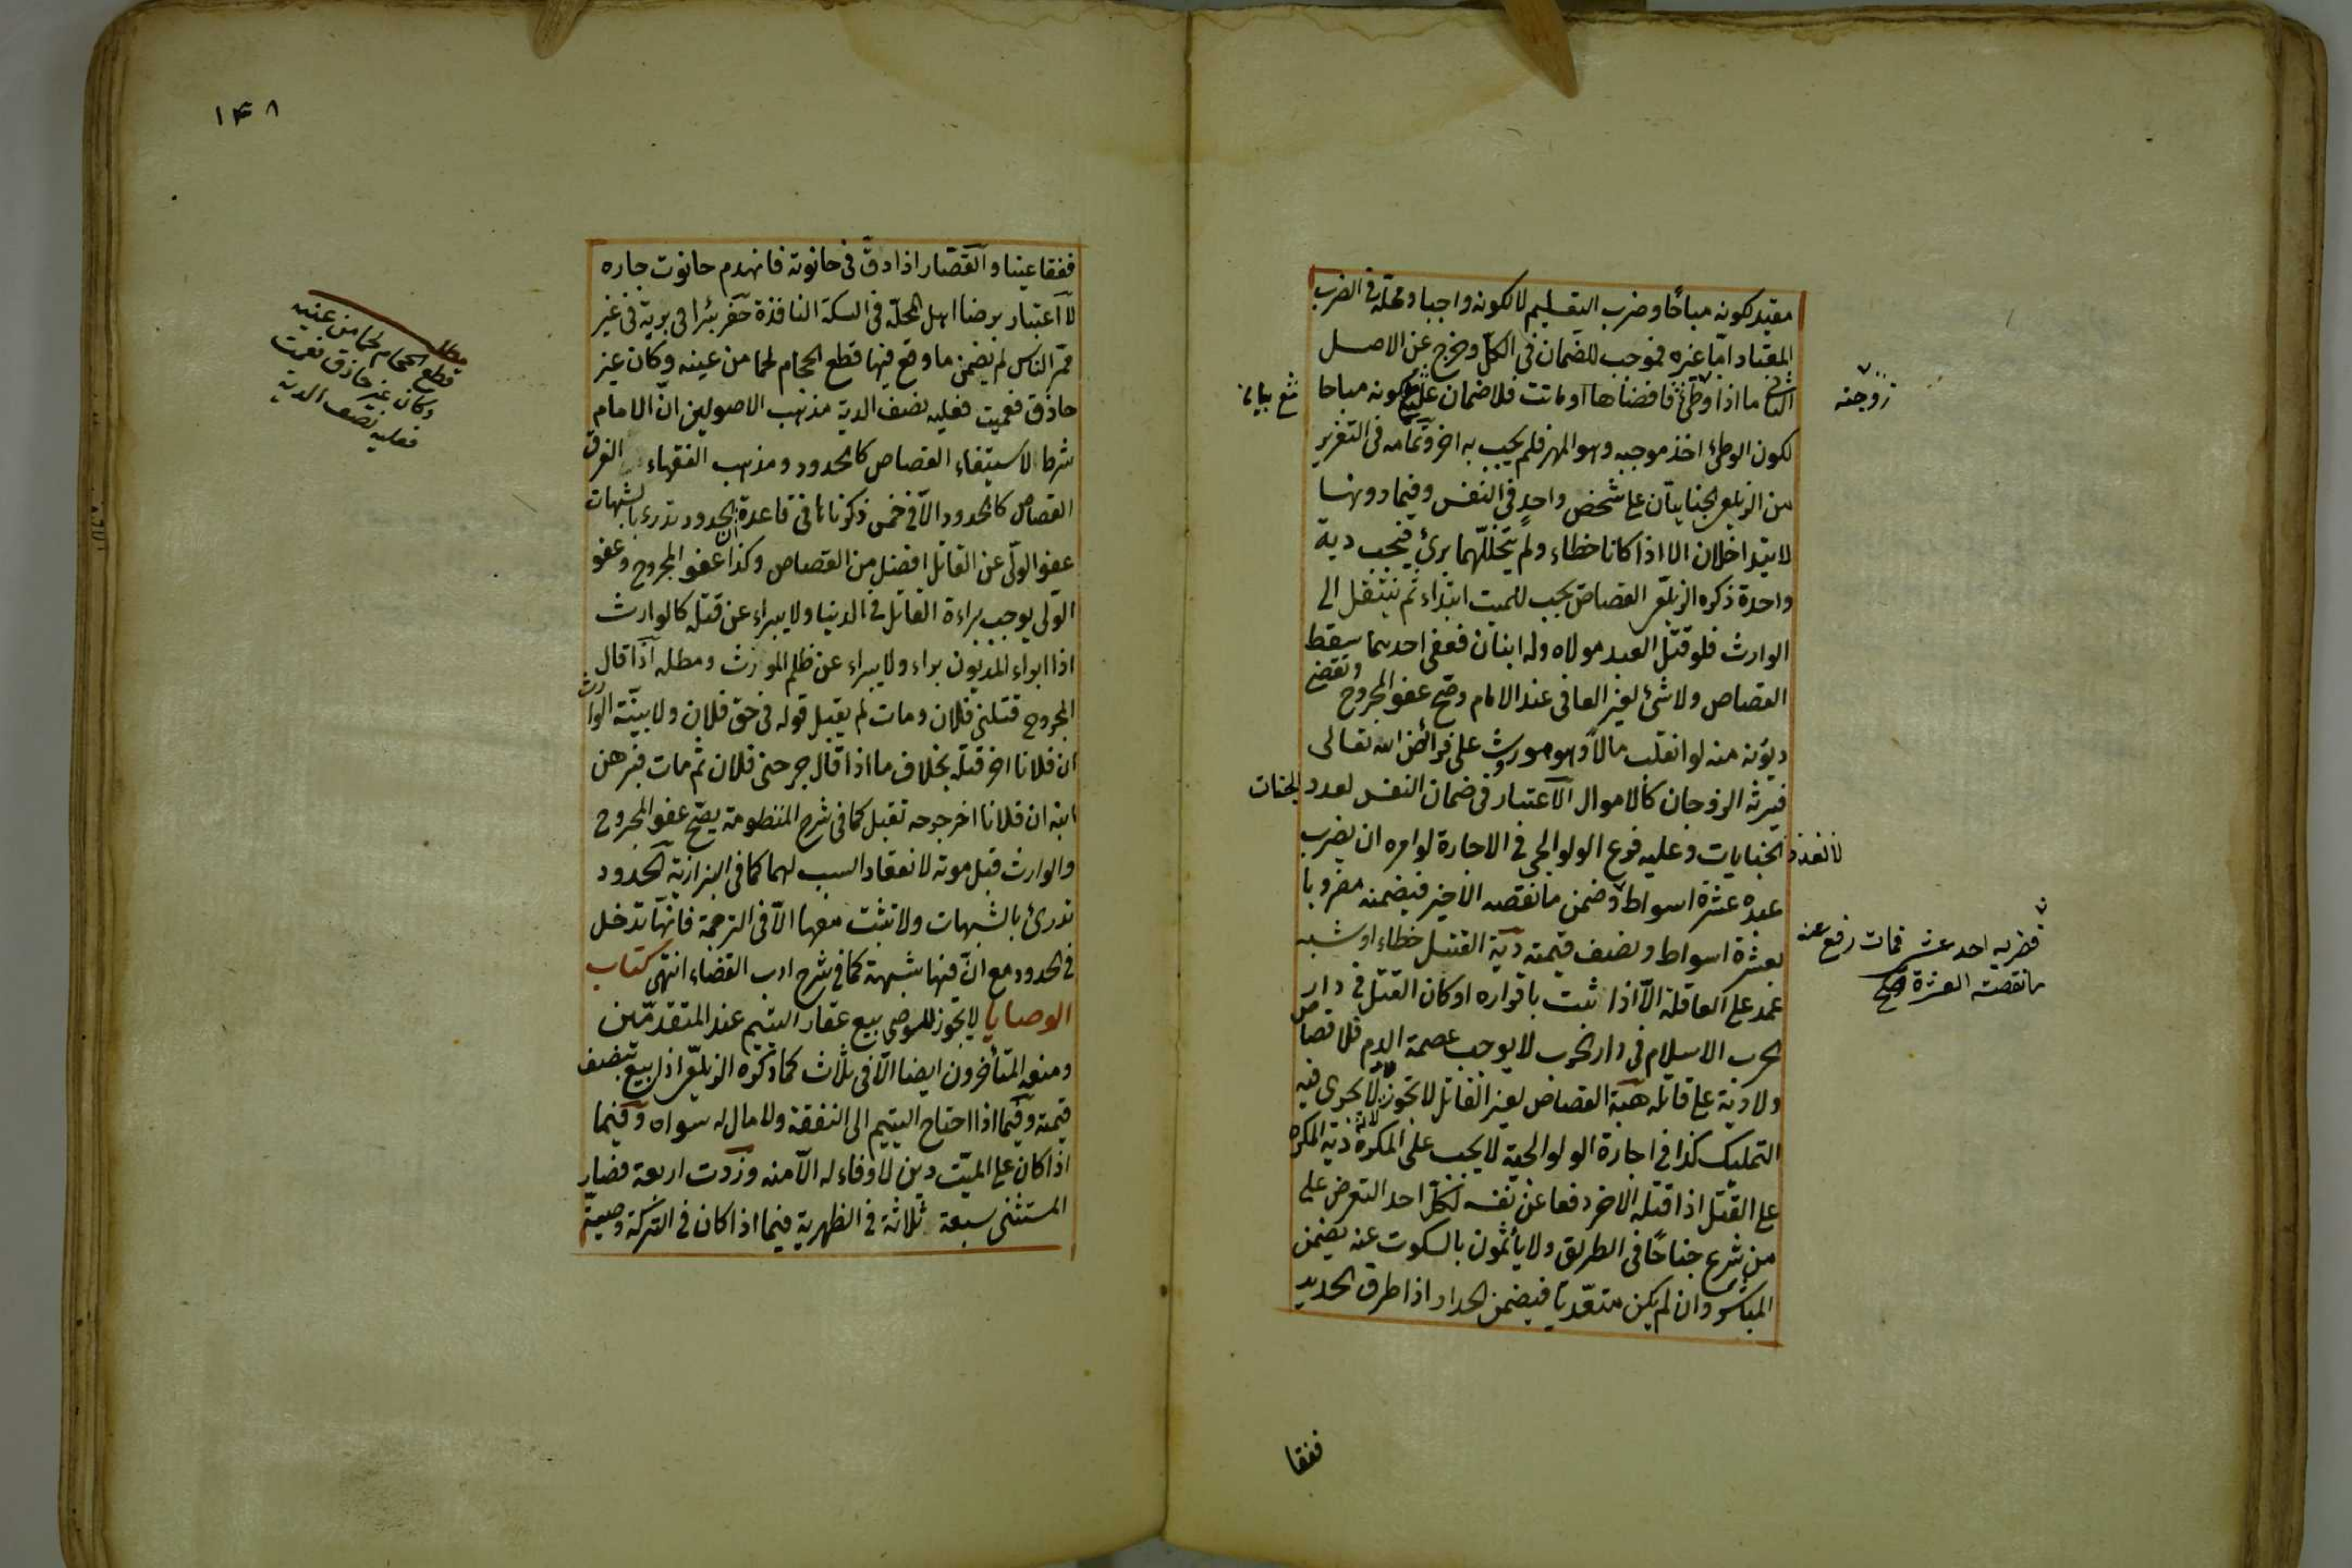 مقيد بكونه مباحا وضرب التعليم لا لكونه واجبا ومحله في الضرب
المعتاد اما غيره فموجب للضمان في الكل وخرج عن الاصل
الثاني ما اذا وطئ فافضاها او ماتت فلا ضمان عليه لكونه مباحا
زوجته
لكون الوطئ اخذ موجبه وهو المهر فلم يجب به اخر وتمامه في التعزير
من الزيلعي الجنايتان على شخص واحد في النفس وفيما دونها
لا يتداخلان الا اذا كانا خطاء ولم يتخللهما برئ فيجب دية
واحدة ذكره الزيلعي القصاص يجب للميت ابتداء ثم ينتقل الى
الوارث فلو قتل العبد مولاه وله ابنان فعفى احدهما سقط
القصاص ولا شئ لغير العافى عند الامام وصح عفو المجروح وتقضى
ديونه منه لو انقلب مالا وهو موروث على فرائض الله تعالى
فيرثه الزوجان كالاموال الاعتبار في ضمان النفس لعدد الجنات
لا لعدد الجنايات وعليه فرع الولوالجي في الاجارة لو امره ان يضرب
عبده عشرة اسواط وضمن ما نقصه الاخير فيضمنه مضروبا
فضربه احد عشر فمات رفع عنه
ما نقصته العشرة صح
بعشرة اسواط ونصف قيمته دية القتيل خطاء او شبه
عمد على العاقلة الا اذا ثبت باقراره او كان القتل في دار
الحرب الاسلام في دار الحرب لا يوجب عصمة الدم فلا قصاص
ولا دية على قاتله هبة القصاص لغير القاتل لا تجوز لانه لا يجرى فيه
التمليك كذا في اجارة الولوالجية لا يجب على المكره دية المكره
على القتل اذا قتله الاخر دفعا عن نفسه لكل احد التعرض على
من شرع جناحا في الطريق ولا يأثمون بالسكوت عنه يضمن
المباشر وان لم يكن متعديا فيضمن الحداد اذا طرق الحديد
ففقا
١٤٨
ففقا عينا والقصار اذا دق في حانوته فانهدم حانوت جاره
لا اعتبار برضا اهل المحلة في السكة النافذة حفر بئرا في برية في غير
ممر الناس لم يضمن ما وقع فيها قطع الحجام لحما من عينه وكان غير
حاذق فعميت فعليه نصف الدية مذهب الاصوليين ان الامام
شرط لاستيفاء القصاص كالحدود ومذهب الفقهاء الفرق
القصاص كالحدود الا في خمس ذكرناها في قاعدة ان الحدود تدرء بالشبهات
عفو الولى عن القاتل افضل من القصاص وكذا عفو المجروح وعفو
الولى يوجب براءة القاتل في الدنيا ولا يبراء عن قتله كالوارث
اذا ابراء المديون براء ولا يبراء عن ظلم المورث ومطله اذا قال
المجروح قتلني فلان ومات لم يقبل قوله في حق فلان ولا بينة الوارث
ان فلانا اخر قتله بخلاف ما اذا قال جرحني فلان ثم مات فبرهن
ابنه ان فلانا اخر جرحه تقبل كما في شرح المنظومة يصح عفو المجروح
والوارث قبل موته لانعقاد السبب لهما كما في البزازية الحدود
تدرئ بالشبهات ولا تثبت معها الا في الترجمة فانها تدخل
في الحدود مع ان فيها شبهة كما في شرح ادب القضاء انتهى كتاب
الوصايا لا يجوز للوصي بيع عقار اليتيم عند المتقدمين
ومنعه المتأخرون ايضا الا في ثلاث كما ذكره الزيلعي اذا بيع بضعف
قيمته وفيما اذا احتاج اليتيم الى النفقة ولا مال له سواه وفيما
اذا كان على الميت دين لا وفاء له الا منه وزدت اربعة فصار
المستثنى سبعة ثلاثة في الظهيرية فيما اذا كان في التركة وصية
مطلب
قطع الحجام لحما من عينه
وكان غير حاذق فعميت
فعليه نصف الدية